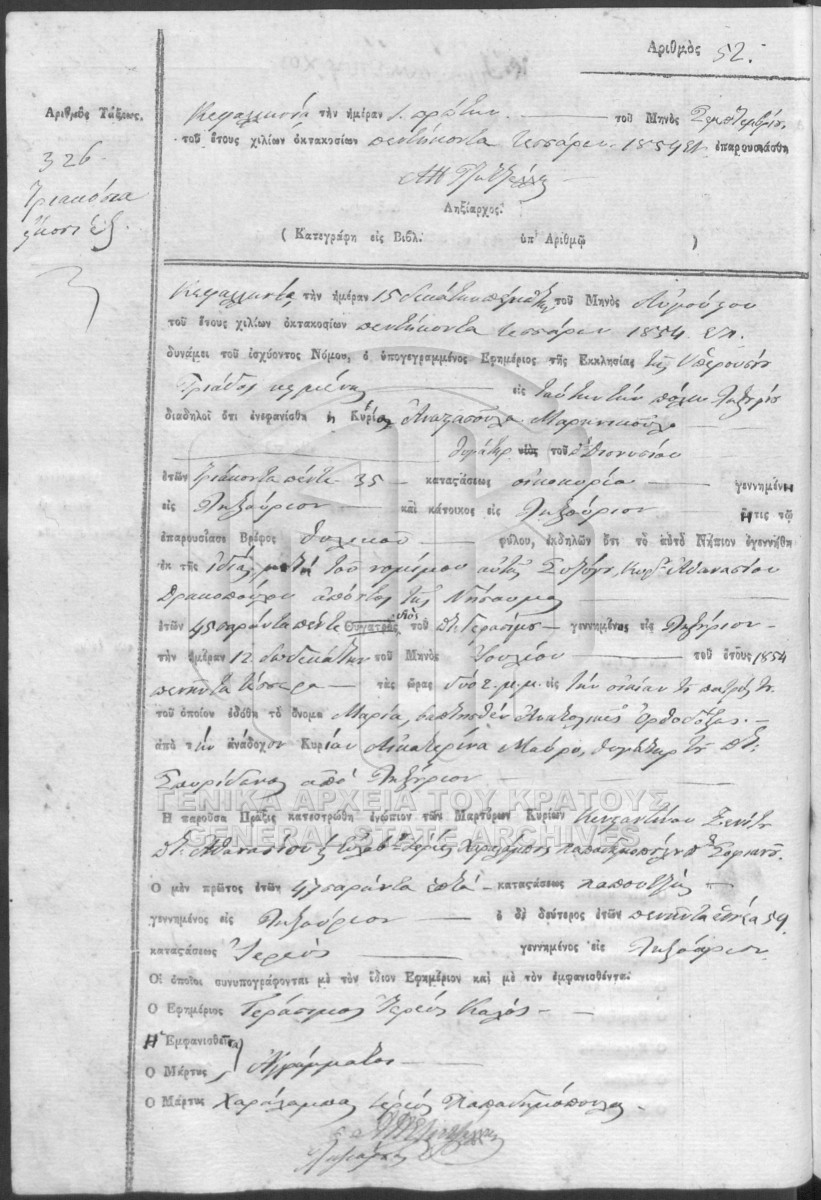 Ἀριθμὸς 52.
Ἀριθμὸς Τάξεως.
326
Τριακόσια
εἴκοσι ἕξ.
Κεφαλληνία τὴν ἡμέραν 1. πρώτην τοῦ Μηνὸς Σεπτεμβρίου
τοῦ ἔτους χιλίων ὀκτακοσίων πεντήκοντα τεσσάρων 1854 ἐπαρουσιάσθη
Ληξίαρχος.
( Κατεγράφη εἰς Βιβλ. ὑπ' Ἀριθμῷ )
Κεφαλληνία τὴν ἡμέραν 15 δεκάτην πέμπτην τοῦ Μηνὸς Αὐγούστου
τοῦ ἔτους χιλίων ὀκτακοσίων πεντήκοντα τεσσάρων 1854
δυνάμει τοῦ ἰσχύοντος Νόμου, ὁ ὑπογεγραμμένος Ἐφημέριος τῆς Ἐκκλησίας τῆς
Τριάδος κειμένης εἰς ταύτην τὴν πόλιν Ληξουρίου
διαδηλοῖ ὅτι ἐνεφανίσθη ἡ Κυρία
θυγάτηρ υἱὸς τοῦ Διονυσίου
ἐτῶν τριάκοντα πέντε 35 καταςάσεως οἰκοκυρία γεννημένη
εἰς Ληξούριον καὶ κάτοικος εἰς Ληξούριον ἥτις τῷ
ἐπαρουσίασε Βρέφος θηλυκοῦ φύλου, ἐκδηλῶν ὅτι τὸ αὐτὸ Νήπιον ἐγεννήθη
ἐκ τῆς ἰδίας μετὰ τοῦ νομίμου αὐτῆς Συζύγου Κυρ. Ἀθανασίου
Δρακοπούλου
ἐτῶν 45 σαράντα πέντε Θυγατρὸς υἱὸς τοῦ Γερασίμου γεννημένος εἰς Ληξούριον
τὴν ἡμέραν 12 δωδεκάτην τοῦ Μηνὸς Ἰουλίου τοῦ ἔτους 1854
πενῆντα τέσσερα τὰς ὥρας δύο 2. μ.μ. εἰς τὴν οἰκίαν τοῦ πατρός του
τοῦ ὁποίου ἐδόθη τὸ ὄνομα Μαρία, βαπτισθὲν Ἀνατολικῶς Ὀρθοδόξως.
ἀπὸ τὴν ἀνάδοχον Κυρίαν Αἰκατερίνα Μαύρου, θυγάτηρ τοῦ
Σπυρίδωνος ἀπὸ Ληξούριον
ΓΕΝΙΚΑ ΑΡΧΕΙΑ ΤΟΥ ΚΡΑΤΟΥΣ
GENERAL STATE ARCHIVES
Ἡ παροῦσα Πρᾶξις κατεστρώθη ἐνώπιον τῶν Μαρτύρων Κυρίων Κωνσταντίνου
Ἀθανασίου Ἱερεὺς Χαράλαμπος Παπαδημόπουλος
Ὁ μὲν πρῶτος ἐτῶν 47 σαράντα ἑπτά καταςάσεως παπουτζῆς
γεννημένος εἰς Ληξούριον ὁ δὲ δεύτερος ἐτῶν πενῆντα ἐννέα 59.
καταςάσεως Ἱερεὺς γεννημένος εἰς Ληξούριον
Οἱ ὁποῖοι συνυπογράφονται μὲ τὸν ἴδιον Ἐφημέριον καὶ μὲ τὸν ἐμφανισθέντα.
Ὁ Ἐφημέριος Γεράσιμος Ἱερεὺς
Ἡ Ἐμφανισθεῖσα
Ὁ Μάρτυς Ἀγράμματοι
Ὁ Μάρτυς Χαράλαμπος ἱερεὺς Παπαδημόπουλος
Ληξίαρχος